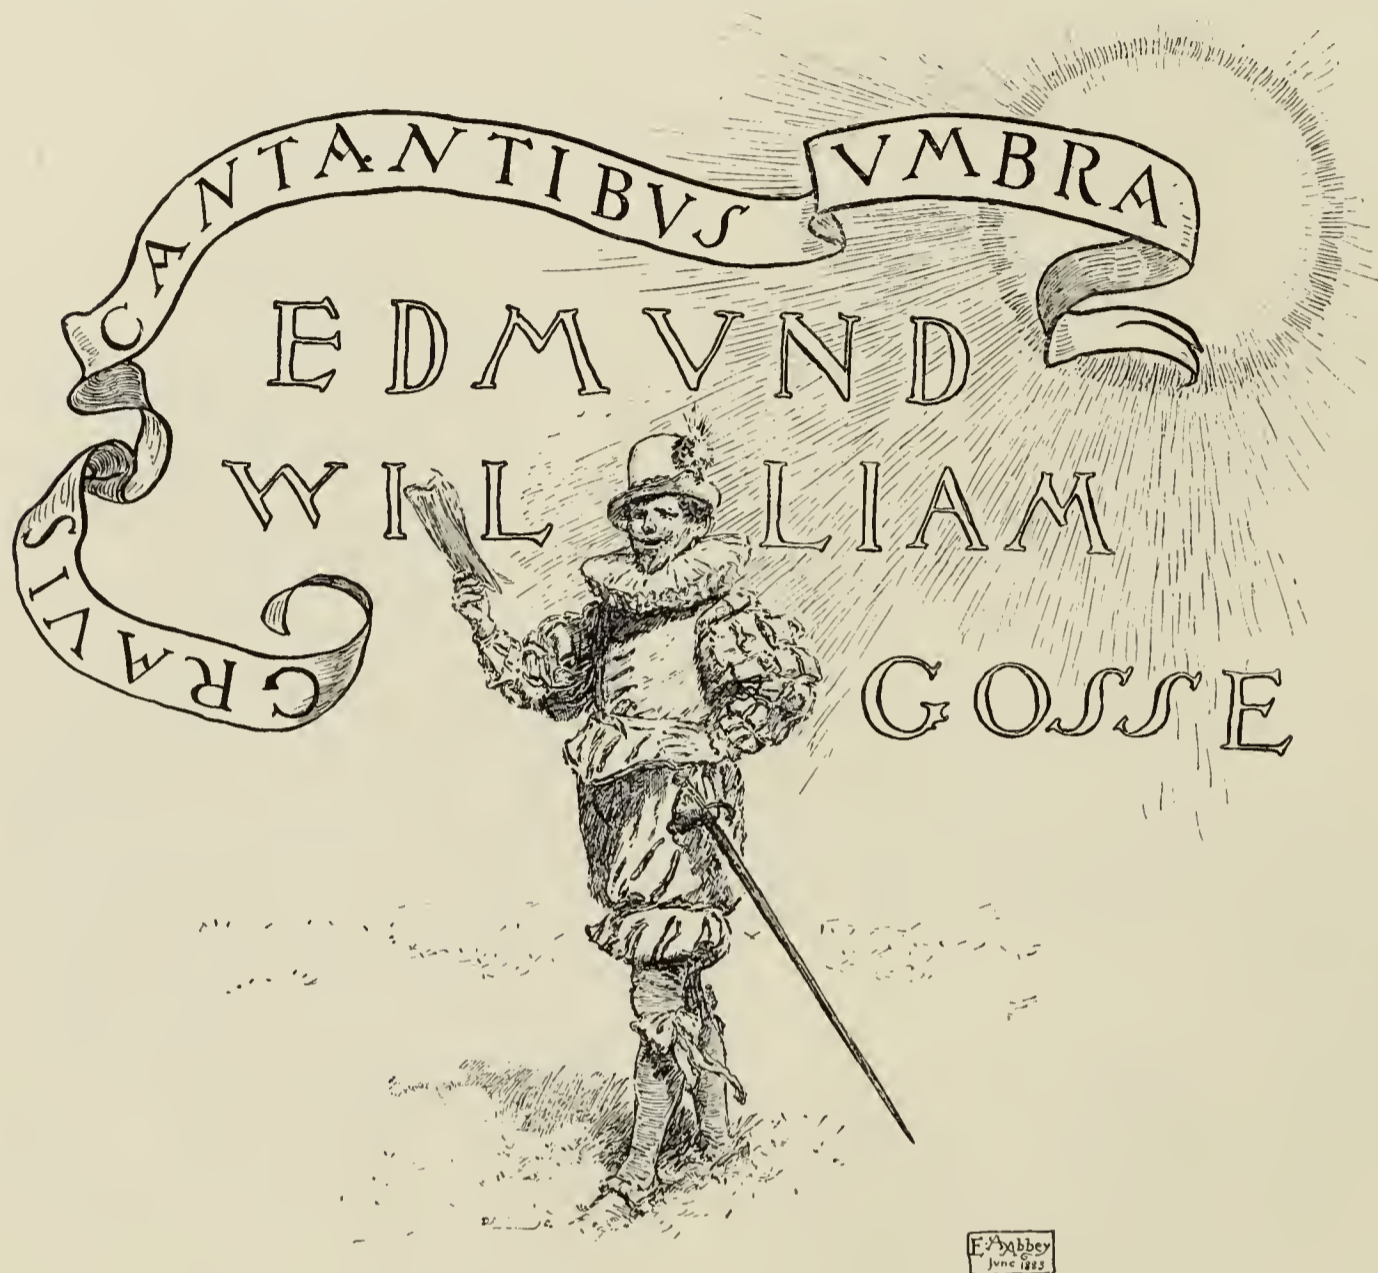 GRAVIS CANTANTIBVS VMBRA
EDMVND
WILLIAM
GOSSE
E·A·Abbey
June 1883